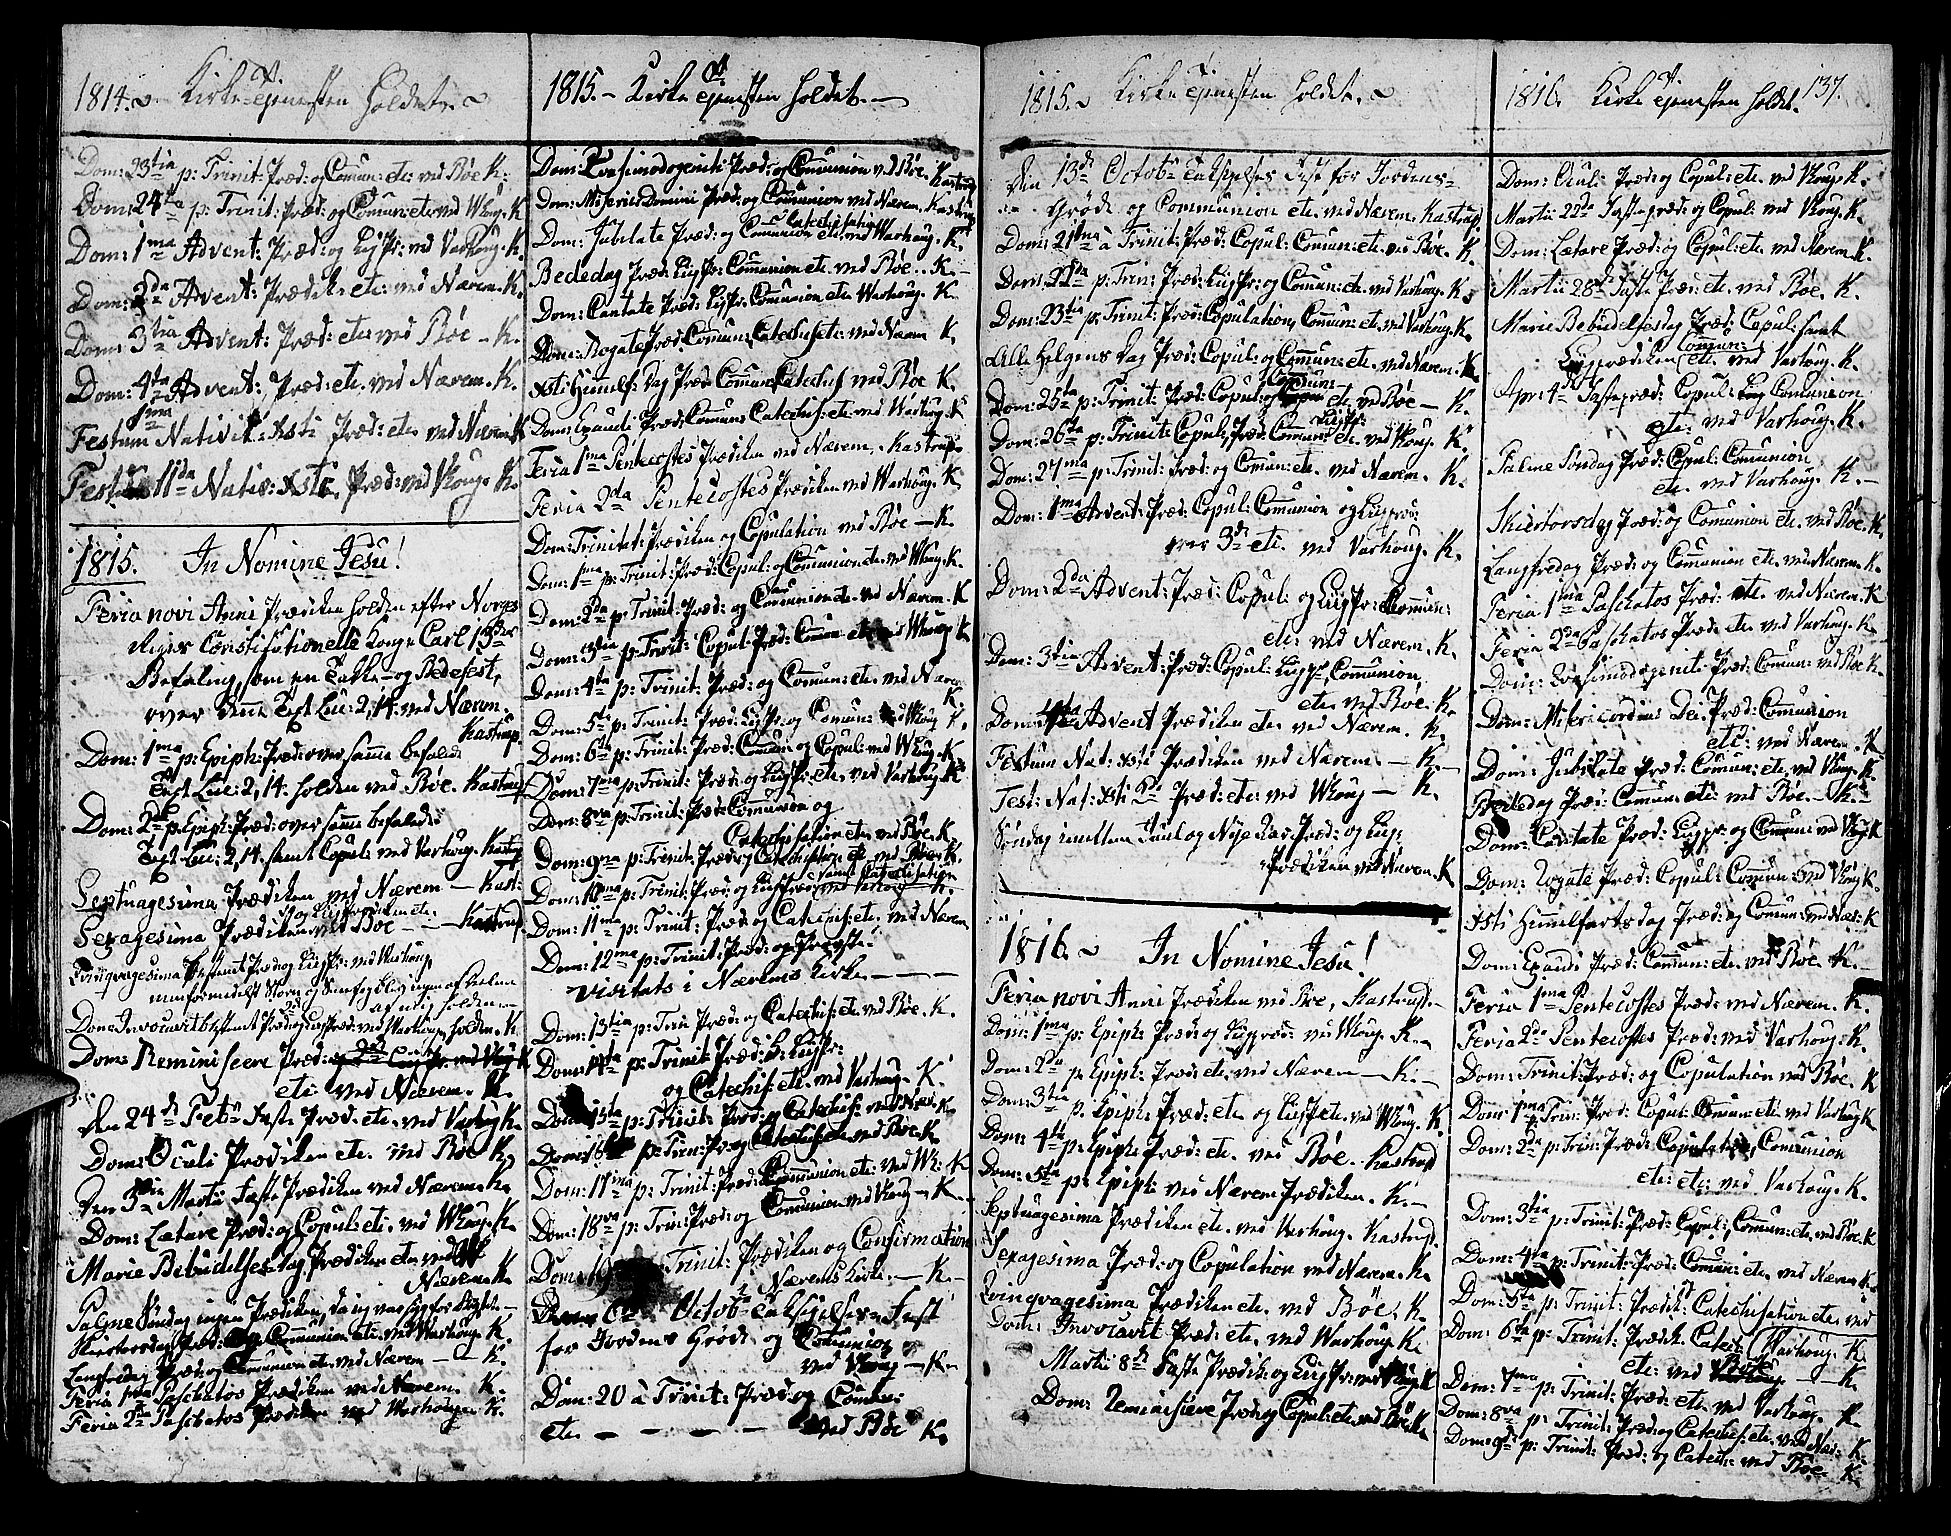 1814. Kirke-Tjenesten holdet.
Dom: 23tia p: Trinit: Præd: og Comun: etc: ved Bøe K:
Dom: 24ta p: Trinit: Præd: og Comun: etc ved Whoug. K
Dom: 1ma Advent: Præd: og Ligpr: ved Varhoug. K.
Dom: 2da Advent: Prædik: etc: ved Nærem. K.
Dom: 3tia Advent: Præd: etc: ved Bøe - K.
Dom: 4ta Advent: Præd: etc. ved Nærem. K.
Festum 1ma Nativit: Xsti Præd: etc ved Nærem K
Festum 11da Nativ: Xsti Præd: ved Whoug. K.
1815. In Nomine Jesu!
Feria novi Anni Prædiken holden efter Norges
Riges Constitutionelle Konge Carl 13des
Befaling, som en Takke- og Bedefest,
over Text Luc: 2, 14. ved Nærem.
Kastrup.
Dom: 1ma p: Epiph: Præd: over samme befalede
Text Luc: 2, 14. holden ved Bøe. Kastrup
Dom: 2da p: Epiph: Præd: over samme befalede
Text Luc: 2, 14. samt Copul: ved Varhoug. Kastrup
Septuagesima Prædiken ved Nærem - Kast:
og Ligprædiken etc.
Sexagesima Prædiken ved Bøe - - Kastrup.
Qvinqvagesima bestemt Præd: og Ligpr: ved Varhoug,
men formedelst Storm og
af mig holden
Dom: Invocavit bestemt Præd: og Ligpræd: ved Varhoug holden. K.
Dom: Reminiscere Præd:
etc: ved Nærem. K.
den 24d Feb: Faste Præd: etc. ved Varhoug K.
Dom: Oculi Prædiken etc. ved Bøe K.
Den 3tia Martii Faste Prædiken ved Nærem. K.
Dom: Lætare Præd: og Copul: etc. ved Whoug. K.
Marie Bebudelsesdag Prædiken etc. ved
Nærem. K.
Palme Søndag ingen Prædiken, da jeg var syg
Skiertorsdag Præd: og Communion etc. ved Varhoug. K.
Langfredag Præd: og Communion etc. ved Nærem - K.
Feria 1ma Paschatos Prædiken ved Nærem. K.
Feria 2da Paschatos Prædiken ved Varhoug. K.
1815. - Kirke Tjenesten holdet.
Dom: Qvasimodogeniti Præd: og Communion ved Bøe. Kastrup
Dom: Misericordia Domini Præd: og Communion ved Nærem. Kastrup
Catechisation
Dom: Jubilate Præd: og Communion etc. ved Warhoug. K.
Bededag Præd: Ligpr: Communion etc. ved Bøe. K.
Dom: Cantate Præd: Ligpr: Communion etc. Varhoug. K.
Dom: Rogate Præd: Commun: Catechis: etc: ved Nærem K.
Xsti Himmelf: Dag Præd: Commun: Catechis: ved Bøe K.
Dom: Exaudi Præd: Commun: Catechis: etc. ved Warhoug. K
Feria 1ma Pentecostes Prædiken ved Nærem. Kastrup
Feria 2da Pentecostes Prædiken ved Warhoug. K
Dom: Trinitat: Prædiken og Copulation ved Bøe - K.
Dom: 1ma p: Trinit: Præd: Copul: og Communion etc. ved Whoug. K.
Dom: 2da p: Trinit: Præd: og Communion etc. ved Nærem. K
Dom: 3tia p: Trinit: Copul: Præd: Commun: etc. ved Whoug. K
Dom: 4ta p: Trinit: Præd: og Comun: etc. ved Nærem
K
Dom: 5ta p: Trinit: Præd: Ligpr: og Comun: ved Whoug K.
Dom: 6ta p: Trinit: Præd: Commun: og Copul: ved Whoug. K
Dom: 7ma p: Trinit: Præd: og Ligpr: etc. ved Varhoug. K
Dom: 8va p: Trinit: Præd: Communion og
Catechisation etc. ved Bøe. K.
Dom: 9na p: Trinit: Præd: og Catechisation etc. ved Bøe K.
samt Catechisation
Dom: 10ma p: Trinit: Præd: og Ligpræd: ved Varhoug K.
Dom: 11ma p: Trinit: Præd: og Catechis: etc. ved Nærem
Dom: 12ma p: Trinit: Præd: og Provste-
visitats i Nærems Kirke - - -
Dom: 13tia p: Trin: Præd: og Catechis: etc. ved Bøe. K.
Dom: 14ta p: Trinit: Præd: Ligpr:
og Catechis: etc. ved Varhoug. K.
Dom: 15ta p: Trinit: Præd: og Catechis: ved Nær. K.
Dom: 16 p: Trin: Præd: og Catechis: etc. ved Bøe K
Dom: 17ma p: Trinit: Præd: Communion etc: ved Wh: K
Dom: 18va p: Trin: Præd: og Comunion ved Whoug - K.
Dom: 19 Trinit: Prædiken og Confirmation
Nærems Kirke - K.
Den 6te Octob: Taksigelses Fest
for Jordens Grøde og Comunion
ved Whoug - K.
Dom: 20 à Trinit: Præd: og Comun:
etc. - - - - ved Bøe K.
1815. Kirke Tjenesten holdet.
Den 13de Octob: Taksigelses Fest for Jordens-
Grøde og Communion etc. ved Nærem. Kastrup.
Dom: 21tma à Trinit: Præd: Copul: Comun: etc. ved Bøe. K.
Dom: 22da p: Trin: Præd: Ligpr: og Comun: etc. ved Varhoug. K.
Dom: 23tia p: Trinit: Præd: Copulation, Commun: etc. ved Varhoug. K.
Alle Helgens Dag Præd: Copul: og Commun: etc. ved Nærem. K.
Dom: 25ta p: Trinit: Præd: Copul: og Comun: etc. ved Bøe - K.
Ligpr:
Dom: 26ta p: Trinit: Copul: Præd: Comun: etc. ved Whoug. K.
Dom: 27ma p: Trinit: Præd: og Comun: etc. ved Nærem. K.
Dom: 1ma Advent: Præd: Copul: Comunion og Ligpræd:
over 3de etc. ved Varhoug. K.
Dom: 2da Advent: Præd: Copul: og Ligpr: Commun:
etc: ved Nærem. K.
Dom: 3tia Advent: Præd: Copul: Ligpr, Communion
etc: ved Bøe. K.
Dom: 4ta Advent Prædiken etc. ved Nærem. K.
Festum Nat: Xsti Prædiken ved Nærem - K.
Fest: Nat: Xsti 2da Præd: etc: ved Whoug - K.
Søndag imellem Juul og Nyt Aar Præd: og Lig-
Prædiken ved Nærem. K
1816. In Nomine Jesu!
Feria novi Anni Prædiken ved Bøe, Kastrup.
Dom: 1ma p: Epiph: Præd: og Ligpræd: ved Whoug. K.
Dom: 2da p: Epiph: Præd: etc. ved Nærem - K.
Dom: 3tia p. Epiph: Præd: etc og Ligpr etc. ved Whoug. K.
Dom: 4ta p: Epiph: Præd: etc. ved Bøe. Kastrup
Dom: 5ta p: Epiph: ved Nærem Prædiken. K.
Septuagesima Prædiken etc. ved Varhoug. Kastrup.
Sexagesima Præd: og Copulation ved Nærem. K.
Qvinqvagesima Prædiken etc. ved Bøe. K.
Dom: Invocavit Præd: etc. ved Warhoug. K.
Martii 8d Faste Prædik: og Ligpr: ved Whoug K
Dom: Reminiscere Præd: og Copul: etc. ved Bøe K.
1816. Kirke Tjenesten holdet. 137.
Dom: Oculi Præd: og Copul: etc. ved Whoug. K.
Martii 22da Faste præd: og Copul: ved Whoug. K.
Dom: Lætare Præd: og Copul: etc. ved Nærem. K.
Martii 28d Faste Præd: etc. ved Bøe. K.
Marie Bebudelsesdag Præd: Copul: samt
Commun:
Ligprædiken etc. ved Varhoug. K.
Apr: 4de Fastepræd: Copul: og Comunion
etc: ved Varhoug. K.
Palme Søndag Præd: Copul: Comunion
etc. ved Varhoug. K.
Skiertorsdag Præd: og Comunion etc. ved Bøe. K.
Langfredag Præd: og Communion etc. ved Nærem. K.
Feria 1ma Paschatos Præd: etc. ved Nærem. K
Feria 2da Paschatos Præd: etc. ved Varhoug. K.
Dom: Qvasimodogeniti Præd: Comun: ved Bøe K.
Dom: Misericordias Dei Præd: Comunion
etc: ved Nærem. K
Dom: Jubilate Præd: Comun: etc. ved Whoug. K.
Bededag Præd: Comun: etc: ved Bøe. - K.
Dom: Cantate Præd: Ligpr: og Commun: ved Whoug K
Dom: Rogate Præd: Copul: Comun: ved Whoug K.
Xsti Himmelfartsdag Præd: og Comun: ved Nær: K
Dom: Exaudi Præd: Comun: etc. ved Bøe K.
Feria 1ma Pentecostes Præd: ved Nærem. K.
Feria 2da Pentecostes Præd: ved Varhoug. K.
Dom: Trinit: Præd: og Copulation ved Bøe. K
Dom: 1ma p: Trin: Præd: Copul: Comun: etc. ved Varhoug K
Dom: 2da p: Trin: Præd: Copulation, Comunion
etc: etc: ved Varhoug. K.
Dom: 3tia p: Trinit: Præd: Copul: Comun: etc. ved Bøe. K
Dom: 4ta p: Trinit: Præd: Comun: etc. ved Nærem K.
Dom: 5ta p: Trinit: Prædik: Catechisation etc. ved
Warhoug. K
Dom: 6ta p: Trinit: Prædik: Catech:
etc: ved Bøe - K.
Dom: 7ma p: Trinit: Præd: etc. ved Varhoug. K
Dom: 8va p: Trinit: Præd: og Catechis: etc. ved Nær: K.
Dom: 9de p: Trinit: Præd: og Catech: ved Bøe K.